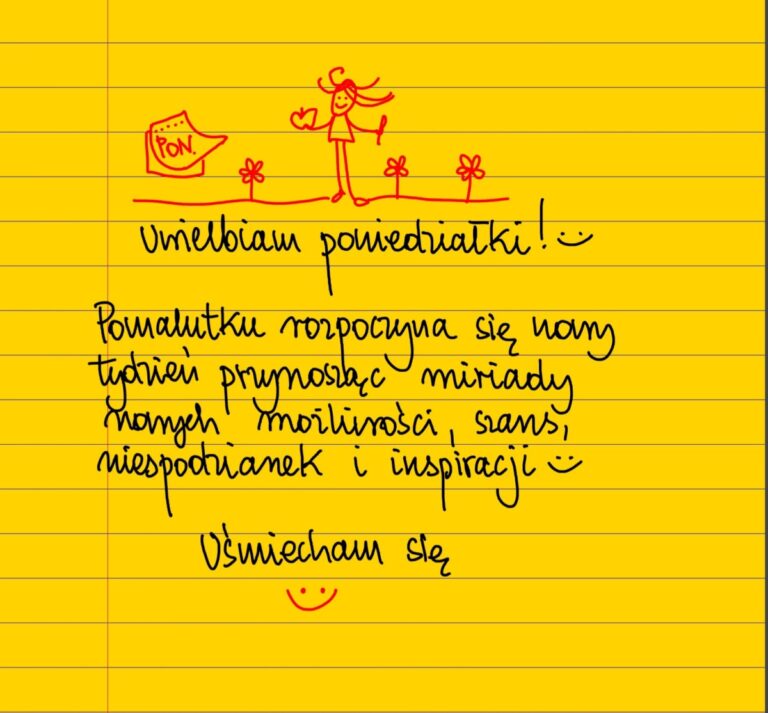 PON.
Uwielbiam poniedziałki! :)
Pomalutku rozpoczyna się nowy
tydzień przynosząc miriady
nowych możliwości, szans,
niespodzianek i inspiracji :)
Uśmiecham się